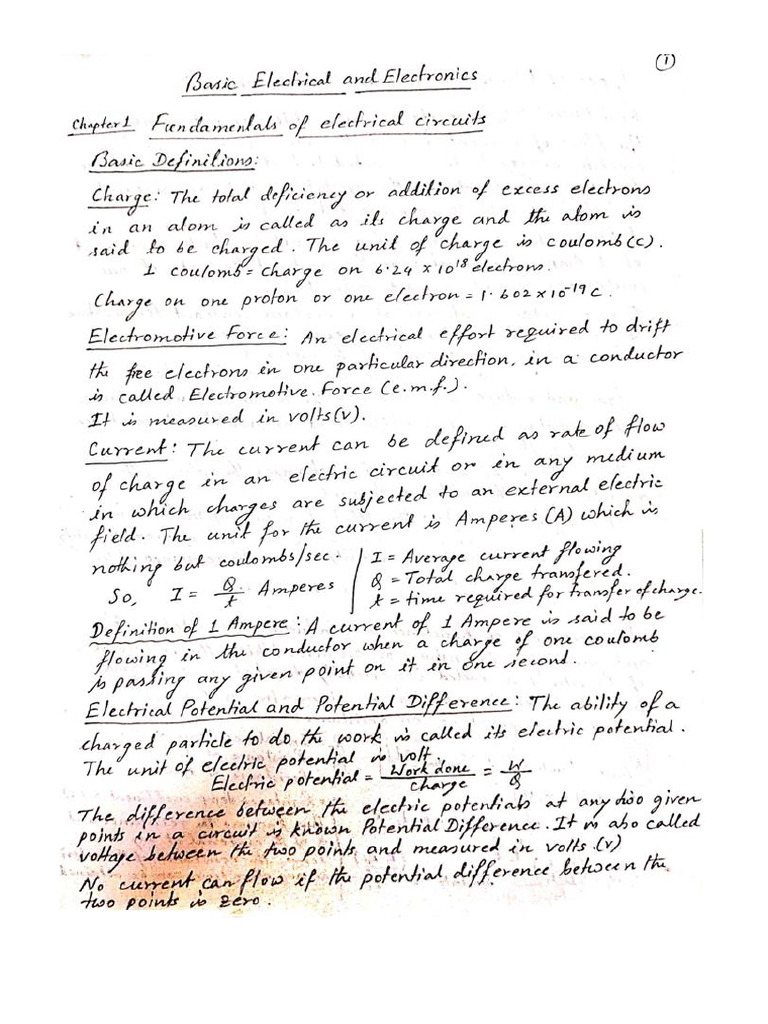 1
Basic Electrical and Electronics
Chapter 1 Fundamentals of electrical circuits
Basic Definitions:
Charge: The total deficiency or addition of excess electrons
in an atom is called as its charge and the atom is
said to be charged. The unit of charge is coulomb (c).
1 coulomb = charge on 6.24 × 10¹⁸ electrons.
Charge on one proton or one electron = 1.602 × 10⁻¹⁹ C.
Electromotive Force: An electrical effort required to drift
the free electrons in one particular direction, in a conductor
is called Electromotive Force (e.m.f.).
It is measured in volts (v).
Current: The current can be defined as rate of flow
of charge in an electric circuit or in any medium
in which charges are subjected to an external electric
field. The unit for the current is Amperes (A) which is
nothing but coulombs/sec.
So, I = Q/t Amperes
I = Average current flowing
Q = Total charge transfered.
t = time required for transfer of charge.
Definition of 1 Ampere: A current of 1 Ampere is said to be
flowing in the conductor when a charge of one coulomb
is passing any given point on it in one second.
Electrical Potential and Potential Difference: The ability of a
charged particle to do the work is called its electric potential.
The unit of electric potential is volt.
Electric potential = Work done/Charge = W/Q
The difference between the electric potentials at any two given
points in a circuit is known Potential Difference. It is also called
voltage between the two points and measured in volts (v)
No current can flow if the potential difference between the
two points is zero.